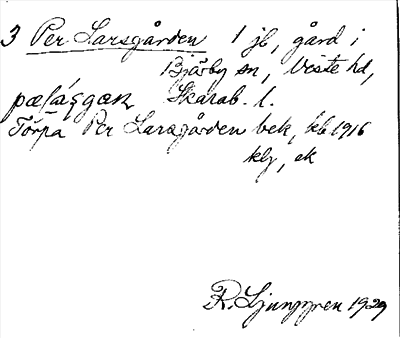 3 Per Larsgården 1 jb, gård i
Bjärby sn, Viste hd,
Skarab. l.
Torpa Per Larsgården bek, kb 1916
klj, ek
R. Ljunggren 1929